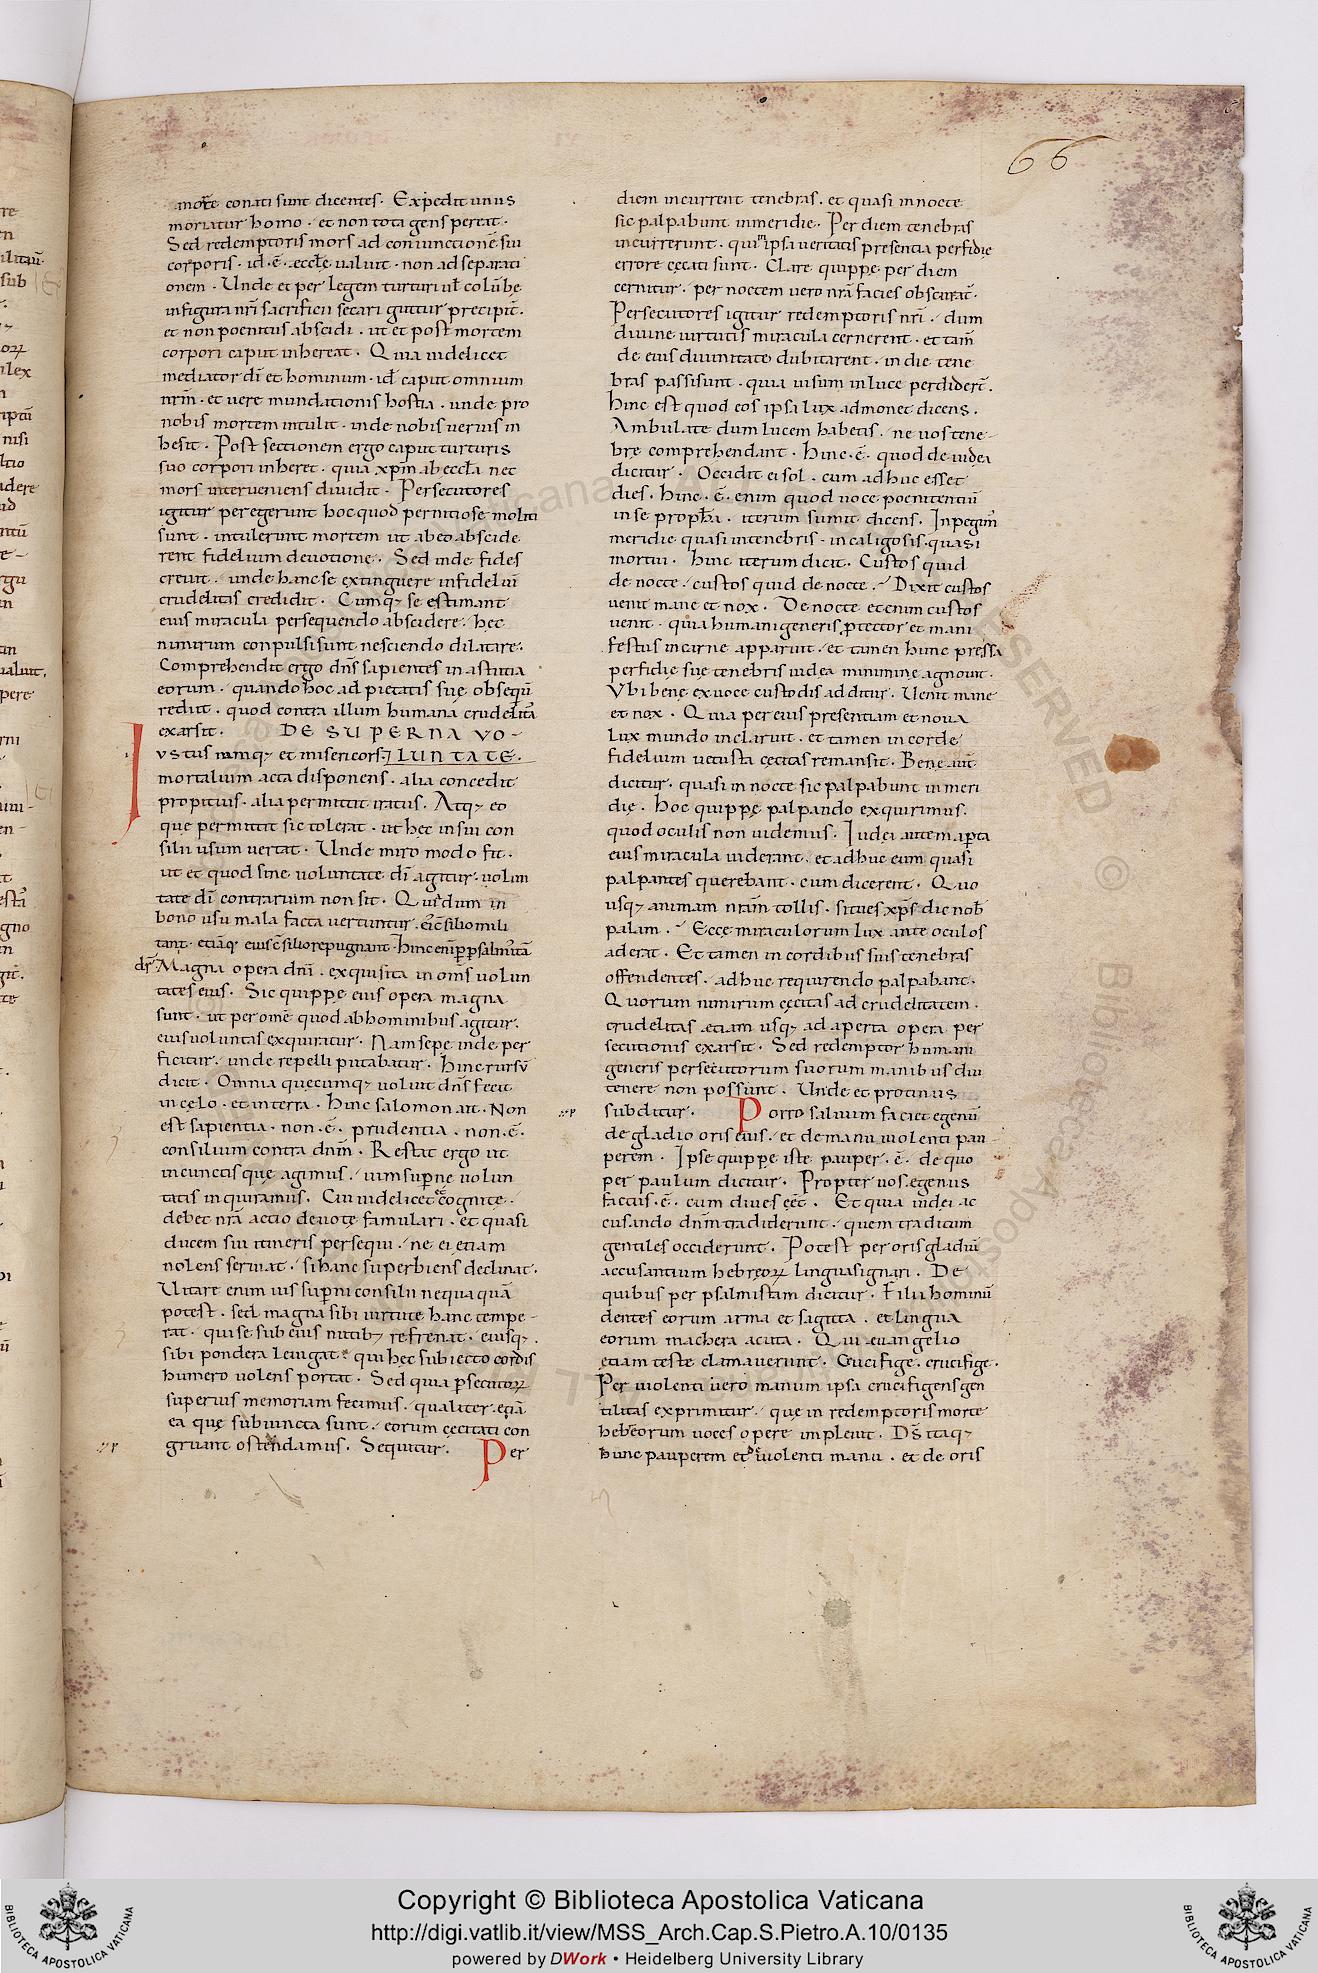 66
morte conati sunt dicentes. Expedit unus
moriatur homo. et non tota gens pereat.
Sed redemptoris mors ad coniunctionē sui
corporis. id. ē. ęccłę ualuit. non ad separati
onem. Unde et per legem turturi uł colūbę
in figura nr̄i sacrificii secari guttur precipit̄.
et non poenitus abscidi. ut et post mortem
corpori caput inhereat. Quia uidelicet
mediator dī et hominum. id caput omnium
nr̄m. et uere mundationis hostia. unde pro
nobis mortem intulit. inde nobis uerius in
hesit. Post sectionem ergo caput turturis
suo corpori inheret. quia xp̄m ab eccła nec
mors interueniens diuidit. Persecutores
igitur peregerunt hoc quod pernitiose moliti
sunt. intulerunt mortem ut ab eo abscide
rent fidelium deuotione. Sed inde fides
creuit. unde hanc se extinguere infideliū
crudelitas credidit. Cumq; se estimant
eius miracula persequendo abscidere. hęc
nimirum conpulsi sunt nesciendo dilatare.
Comprehendit ergo dn̄s sapientes in astutia
eorum. quando hoc ad pietatis suę obsequiū
rediit. quod contra illum humana crudelitas
exarsit. DE SUPERNA VO-
Iustus namq; et misericors LUNTATE.
mortalium acta disponens. alia concedit
propitius. alia permittit iratus. Atq; eo
que permittit sic tolerat. ut hęc in sui con
silii usum uertat. Unde miro modo fit.
ut et quod sine uoluntate dī agitur. uolun
tati dī contrarium non sit. Quia dum in
bono usu mala facta uertuntur. ei consilio mili
tant. etiā quę eius consilio repugnant. Hinc enim per psalmistā
dr̄ Magna opera dn̄i. exquisita in om̄s uolun
tates eius. Sic quippe eius opera magna
sunt. ut per om̄e quod ab hominibus agitur.
eius uoluntas exquiratur. Nam sepe inde per
ficitur. unde repelli putabatur. Hinc rursū
dicit. Omnia quęcumq; uoluit dn̄s fecit
in cęlo. et in terra. Hinc salomon ait. Non
est sapientia. non. ē. prudentia. non. ē.
consilium contra dn̄m. Restat ergo ut
in cunctis quę agimus. uim supernę uolun
tatis inquiramus. Cui uidelicet cognitę.
debet nr̄a actio deuotę famulari. et quasi
ducem sui itineris persequi. ne ei etiam
nolens seruiat. si hanc superbiens declinat.
Uitare enim uis superni consilii nequaquā
potest. sed magna sibi uirtute hanc tempe-
rat. qui se sub eius nutib; refrenat. eiusq;
sibi pondera leuigat. qui hęc subiecto cordis
humero uolens portat. Sed quia persecutorꝝ
superius memoriam fecimus. qualiter etiā
ea quę subiuncta sunt. eorum cęcitati con
gruant ostendamus. Sequitur. Per
diem incurrent tenebras. et quasi in nocte
sic palpabunt in meridie. Per diem tenebras
incurrerunt. quia in ipsa ueritatis presentia perfidię
errore cęcati sunt. Clare quippe per diem
cernitur. per noctem uero nr̄a facies obscurat̄.
Persecutores igitur redemptoris nr̄i. dum
diuine uirtutis miracula cernerent. et tam̄
de eius diuinitate dubitarent. in die tene
bras passi sunt. quia uisum in luce perdiderт̄.
Hinc est quod eos ipsa lux admonet dicens.
Ambulate dum lucem habetis. ne uos tene-
brę comprehendant. Hinc. ē. quod de iudea
dicitur. Occidit ei sol. cum adhuc esset
dies. Hinc. ē. enim quod uoce poenitentiū
in se propheta. iterum sumit dicens. Inpegim̄
meridie quasi in tenebris. in caligosis quasi
mortui. Hinc iterum dicit. Custos quid
de nocte. custos quid de nocte. Dixit custos
uenit mane et nox. De nocte etenim custos
uenit. quia humani generis protector et mani
festus in carne apparuit. et tamen hunc pressa
perfidię suę tenebris iudea minimine agnouit.
Ubi bene ex uoce custodis additur. Uenit mane
et nox. Quia per eius presentiam et noua
lux mundo inclaruit. et tamen in corde
fidelium uetusta cęcitas remansit. Bene aūt
dicitur. quasi in nocte sic palpabunt in meri
die. Hoc quippe palpando exquirimus.
quod oculis non uidemus. Iudei autem aperta
eius miracula uiderant. et adhuc eum quasi
palpantes querebant. cum dicerent. Quo
usq; animam nr̄am tollis. si tu es xp̄s dic nob̄
palam. Ecce miraculorum lux ante oculos
aderat. Et tamen in cordibus suis tenebras
offendentes. adhuc requirendo palpabant.
Quorum nimirum cęcitas ad crudelitatem.
crudelitas etiam usq; ad aperta opera per
secutionis exarsit. Sed redemptor humani
generis persecutorum suorum manibus diu
tenere non possunt. Unde et protinus
subditur. Porro saluum faciet egenū
de gladio oris eius. et de manu uiolenti pau-
perem. Ipse quippe iste pauper. ē. de quo
per paulum dicitur. Propter uos egenus
factus. ē. cum diues eēt. Et quia iudei ac
cusando dn̄m tradiderunt. quem traditum
gentiles occiderunt. Potest per oris gladiū
accusantium hebręoꝝ lingua signari. De
quibus per psalmistam dicitur. Filii hominū
dentes eorum arma et sagitta. et lingua
eorum machera acuta. Qui euangelio
etiam teste clamauerunt. Crucifige. crucifige.
Per uiolenti uero manum ipsa crucifigens gen
tilitas exprimitur. quę in redemptoris morte
hebreorum uoces opere impleuit. Ds̄ itaq;
hunc pauperem et de uiolenti manu. et de oris
Copyright © Biblioteca Apostolica Vaticana
http://digi.vatlib.it/view/MSS_Arch.Cap.S.Pietro.A.10/0135
powered by DWork • Heidelberg University Library
BIBLIOTECA APOSTOLICA VATICANA
BIBLIOTECA APOSTOLICA VATICANA